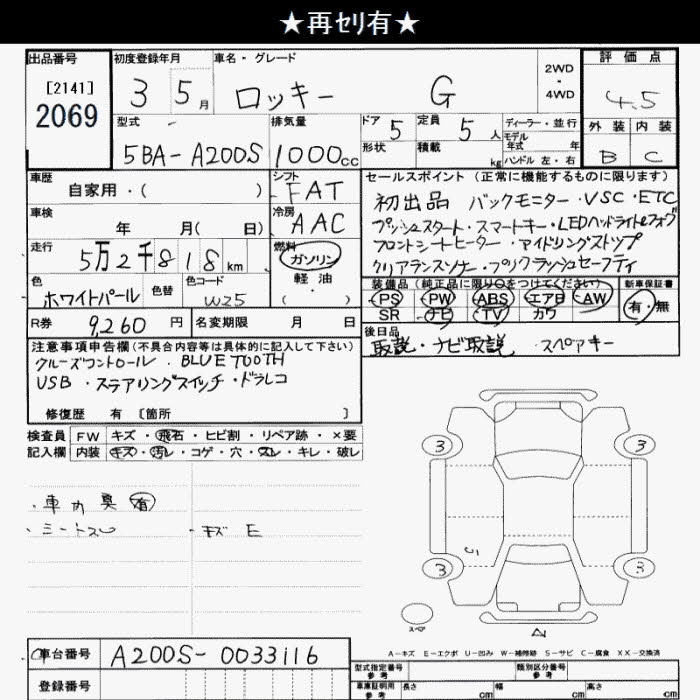 ★再セリ有★
出品番号 初度登録年月 車名・グレード 2WD・4WD 評価点
[2141]
2069
3 5月 ロッキー G 4.5
型式 排気量 ドア 5 定員 5人 ディーラー・並行 外装 内装
形状 積載 kg モデル年式 年
5BA-A200S 1000cc ハンドル 左・右 B C
車歴 シフト セールスポイント (正常に機能するものに限ります)
自家用・( ) FAT
初出品 バックモニター・VSC・ETC
車検 冷房
年 月( 日) AAC
プッシュスタート・スマートキー・LEDヘッドライト&フォグ
走行 燃料
フロントシートヒーター・アイドリングストップ
5万2千818km ガソリン
クリアランスソナー・
色 色替 色コード 軽油
ホワイトパール W25 ( )
装備品(純正品に限り○をつけてください) 新車保証書
PS PW ABS エアB AW 有・無
SR ナビ TV カワ
R券 9,260円 名変期限 月 日
後日品
取説・ナビ取説・スペアキー
注意事項申告欄(不具合内容等は具体的に記入して下さい)
クルーズコントロール・BLUETOOTH
USB・ステアリングスイッチ・ドラレコ
修復歴 有 〔箇所 〕
検査員 FW キズ・飛石・ヒビ割・リペア跡・×要
記入欄 内装 キズ・汚レ・コゲ・穴・スレ・キレ・破レ
3 3
・車内臭 有
・シートスレ ・キズ E
3 3
スペア
A-キズ E-エクボ U-凹み W-補修跡 S-サビ C-腐食 XX-交換済
車台番号 A200S-0033116
型式指定番号 類別区分番号
登録番号 車庫証明用参考 長さ 参考 cm 幅 cm 高さ 参考 cm